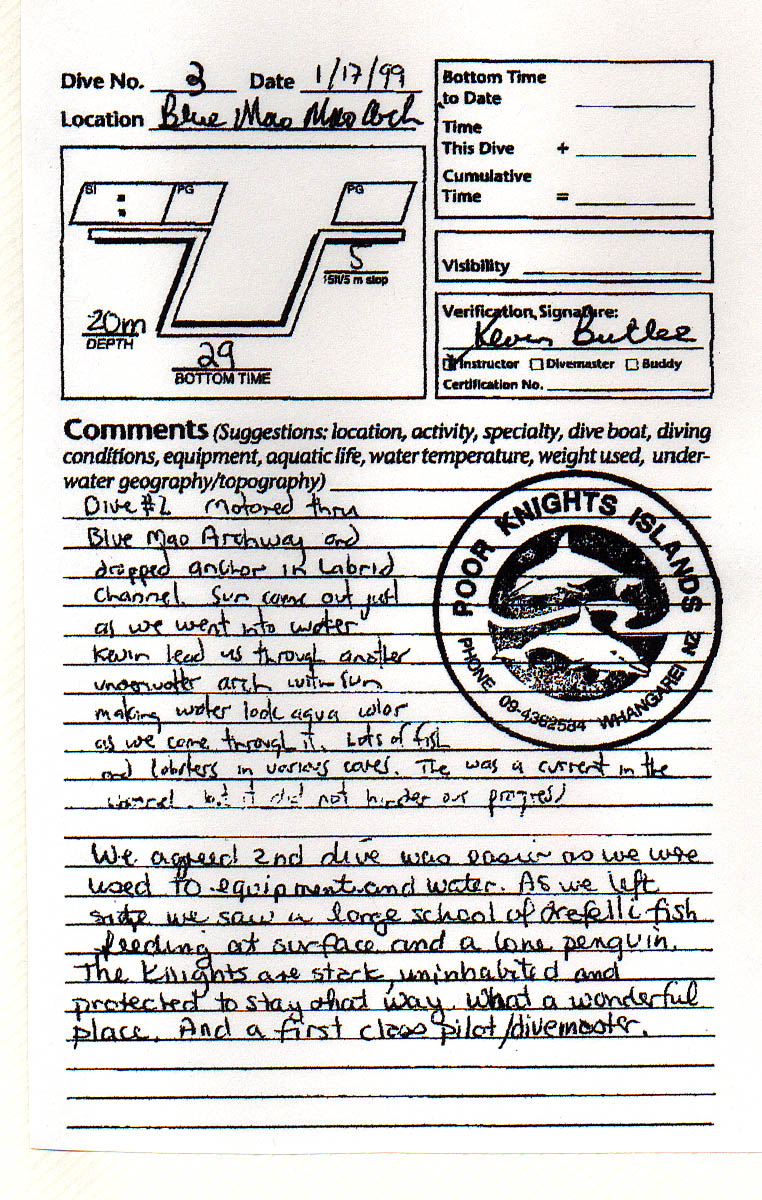 Dive No. 3 Date 1/17/99
Location Blue Mao Mao Arch
Bottom Time
to Date
Time
This Dive +
Cumulative
Time =
SI : PG
PG
5
15ft/5 m stop
20m
DEPTH
29
BOTTOM TIME
Visibility
Verification Signature:
Kevin Butlee
Instructor Divemaster Buddy
Certification No.
Comments (Suggestions: location, activity, specialty, dive boat, diving
conditions, equipment, aquatic life, water temperature, weight used, under-
water geography/topography)
Dive #2 Motored thru
Blue Mao Archway and
dropped anchor in Labrid
Channel. Sun came out just
as we went into water
Kevin lead us through another
underwater arch with sun
making water look aqua color
as we come through it. Lots of fish
and lobsters in various caves. The was a current in the
channel, but it did not hinder our progress
We agreed 2nd dive was easier as we were
used to equipment and water. As we left
we saw a large school of trefelli fish
feeding at surface and a lone penguin.
The Knights are stark, uninhabited and
protected to stay that way. What a wonderful
place. And a first class pilot/divemaster.
POOR KNIGHTS ISLANDS
PHONE 09-4362584 WHANGAREI NZ